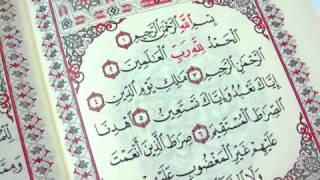 بِسْمِ اللَّهِ الرَّحْمَٰنِ الرَّحِيمِ ۝١
الْحَمْدُ لِلَّهِ رَبِّ الْعَالَمِينَ ۝٢
الرَّحْمَٰنِ الرَّحِيمِ ۝٣ مَالِكِ يَوْمِ الدِّينِ ۝٤
إِيَّاكَ نَعْبُدُ وَإِيَّاكَ نَسْتَعِينُ ۝٥ اهْدِنَا
الصِّرَاطَ الْمُسْتَقِيمَ ۝٦ صِرَاطَ الَّذِينَ أَنْعَمْتَ
عَلَيْهِمْ غَيْرِ الْمَغْضُوبِ عَلَيْهِمْ
وَلَا